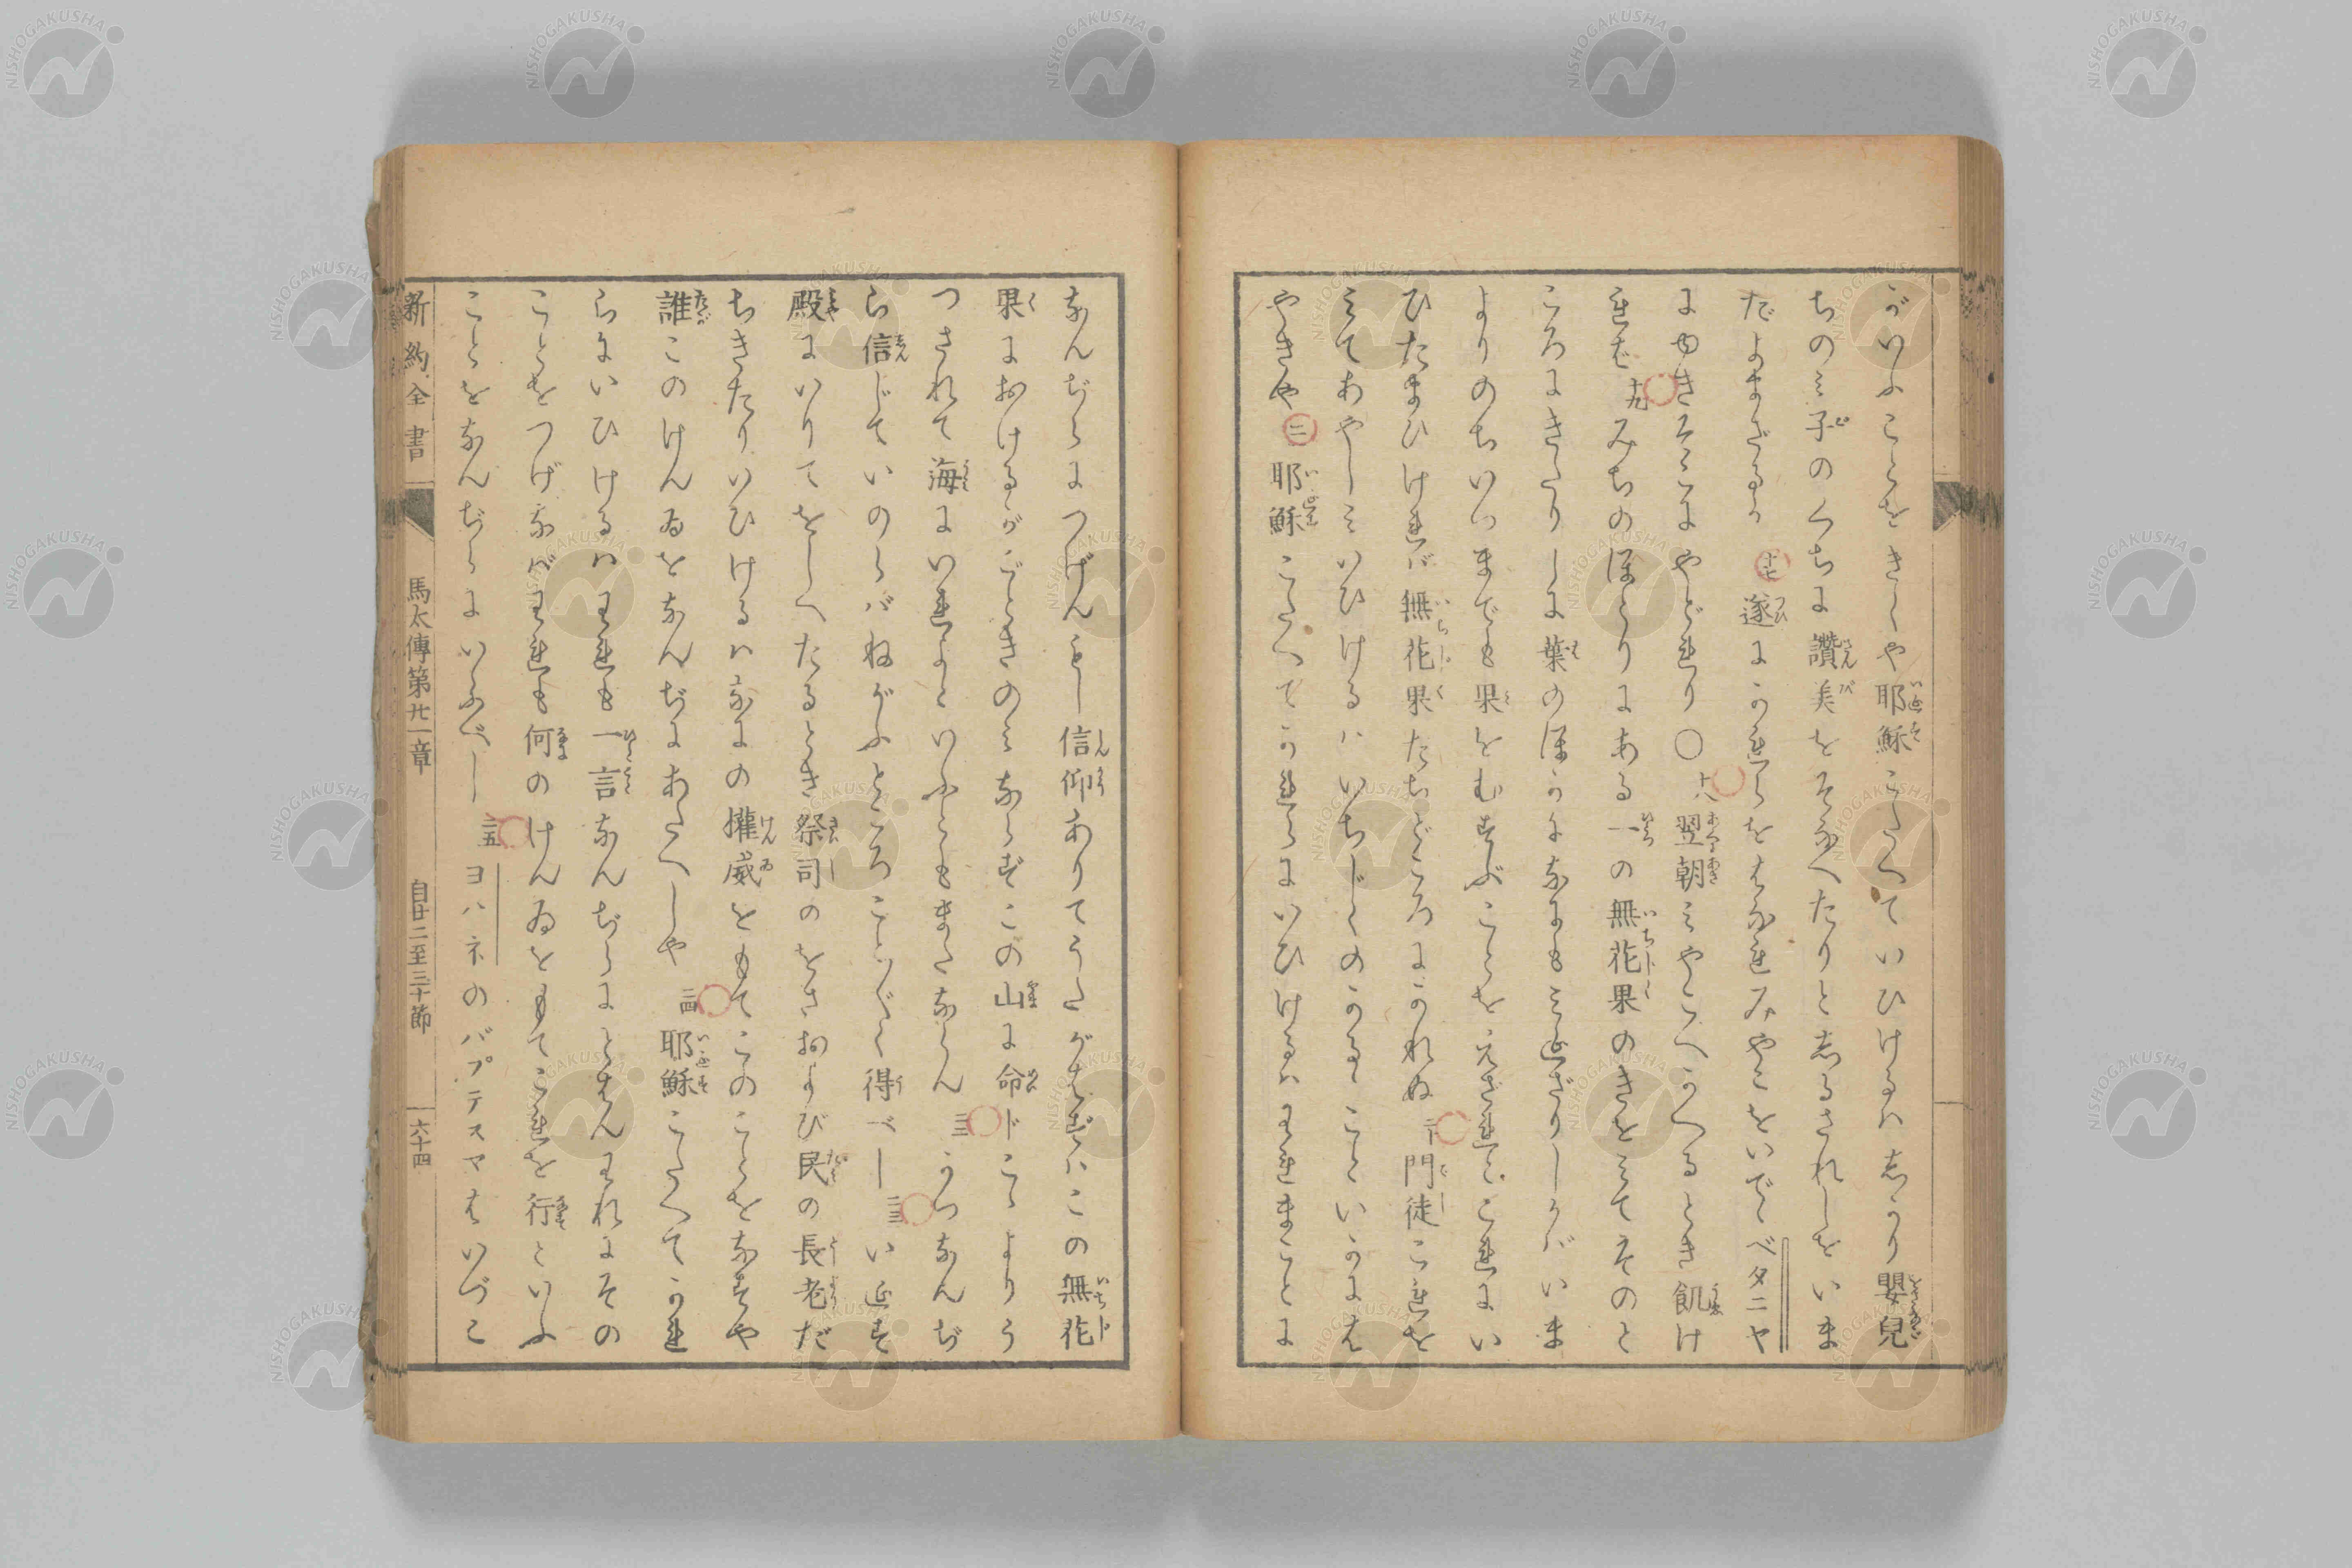 がいふことをきくや耶穌こたへていひけるハ志かり嬰兒
ちのミ子のくちに讚美をそなへたりと志るされしをいま
だよまざるか 十七 遂にかれらをはなれみやこをいでゝベタニヤ
にゆきそこにやどれり〇 十八 翌朝ミやこへかへるとき飢け
れば 十九 みちのほとりにある一の無花果のきをミてそのと
ころにきたりしに葉のほかになにもミえざりしかバいま
よりのちいつまでも果をむすぶことをえざれとこれにい
ひたまひけれバ無花果たちどころにかれぬ 二十 門徒これを
ミてあやしミいひけるハいちじくのかるゝこといかには
やきや 二一 耶穌こたへてかれらにいひけるハわれまことに
なんぢらにつげんもし信仰ありてうたがはずハこの無花
果におけるがごときのミならずこの山に命じこゝよりう
つされて海にいれよといふともまたならん 二二 かつなんぢ
ら信じていのらバねがふところことごとく得べし 二三 いえす
殿にいりてをしへたるとき祭司のをさおよび民の長老だ
ちきたりいひけるハなにの權威をもてこのことをなすや
誰このけんゐをなんぢにあたへしや 二四 耶穌こたへてかれ
らにいひけるハわれも一言なんぢらにとはんわれにその
ことをつげなバわれも何のけんゐをもてこれを行といふ
ことをなんぢらにいふべし 二五 ヨハネのバプテスマはいづこ
新約全書 馬太傳第廿一章 自廿二至三十節 一六十四